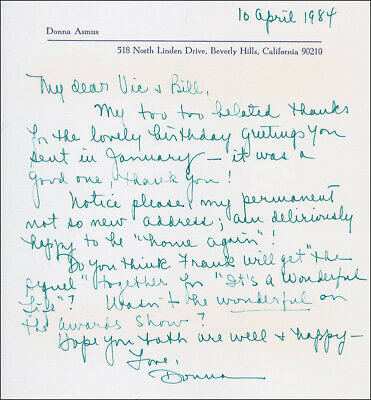 10 April 1984
Donna Asmus
518 North Linden Drive, Beverly Hills, California 90210
My dear Vic & Bill,
My too too belated thanks
for the lovely birthday greetings you
sent in January — it was a
good one, thank you!
Notice please, my permanent
not so new address; am deliriously
happy to be "home again"!
Do you think Frank will get "the
sequel" together for "It's a Wonderful
Life"? Wasn't he wonderful on
the awards show?
Hope you both are well & happy—
Love,
Donna